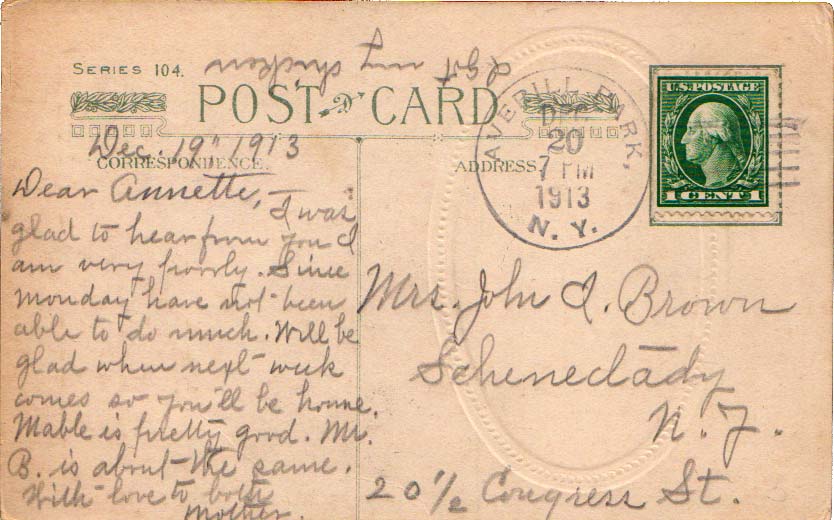 I got my chicken
SERIES 104.
POST CARD
Dec. 19" 1913
CORRESPONDENCE.
ADDRESS
AVERILL PARK,
DEC
20
7 PM
1913
N. Y.
U.S. POSTAGE
1 CENT 1
Dear Annette, - I was
glad to hear from you I
am very poorly. Since
Monday have not been
able to do much. Will be
glad when next week
comes so you'll be home.
Mable is pretty good. Mr.
B. is about the same.
With love to both
Mother.
Mrs. John I. Brown
Schenectady
N. Y.
20 1/2 Congress St.